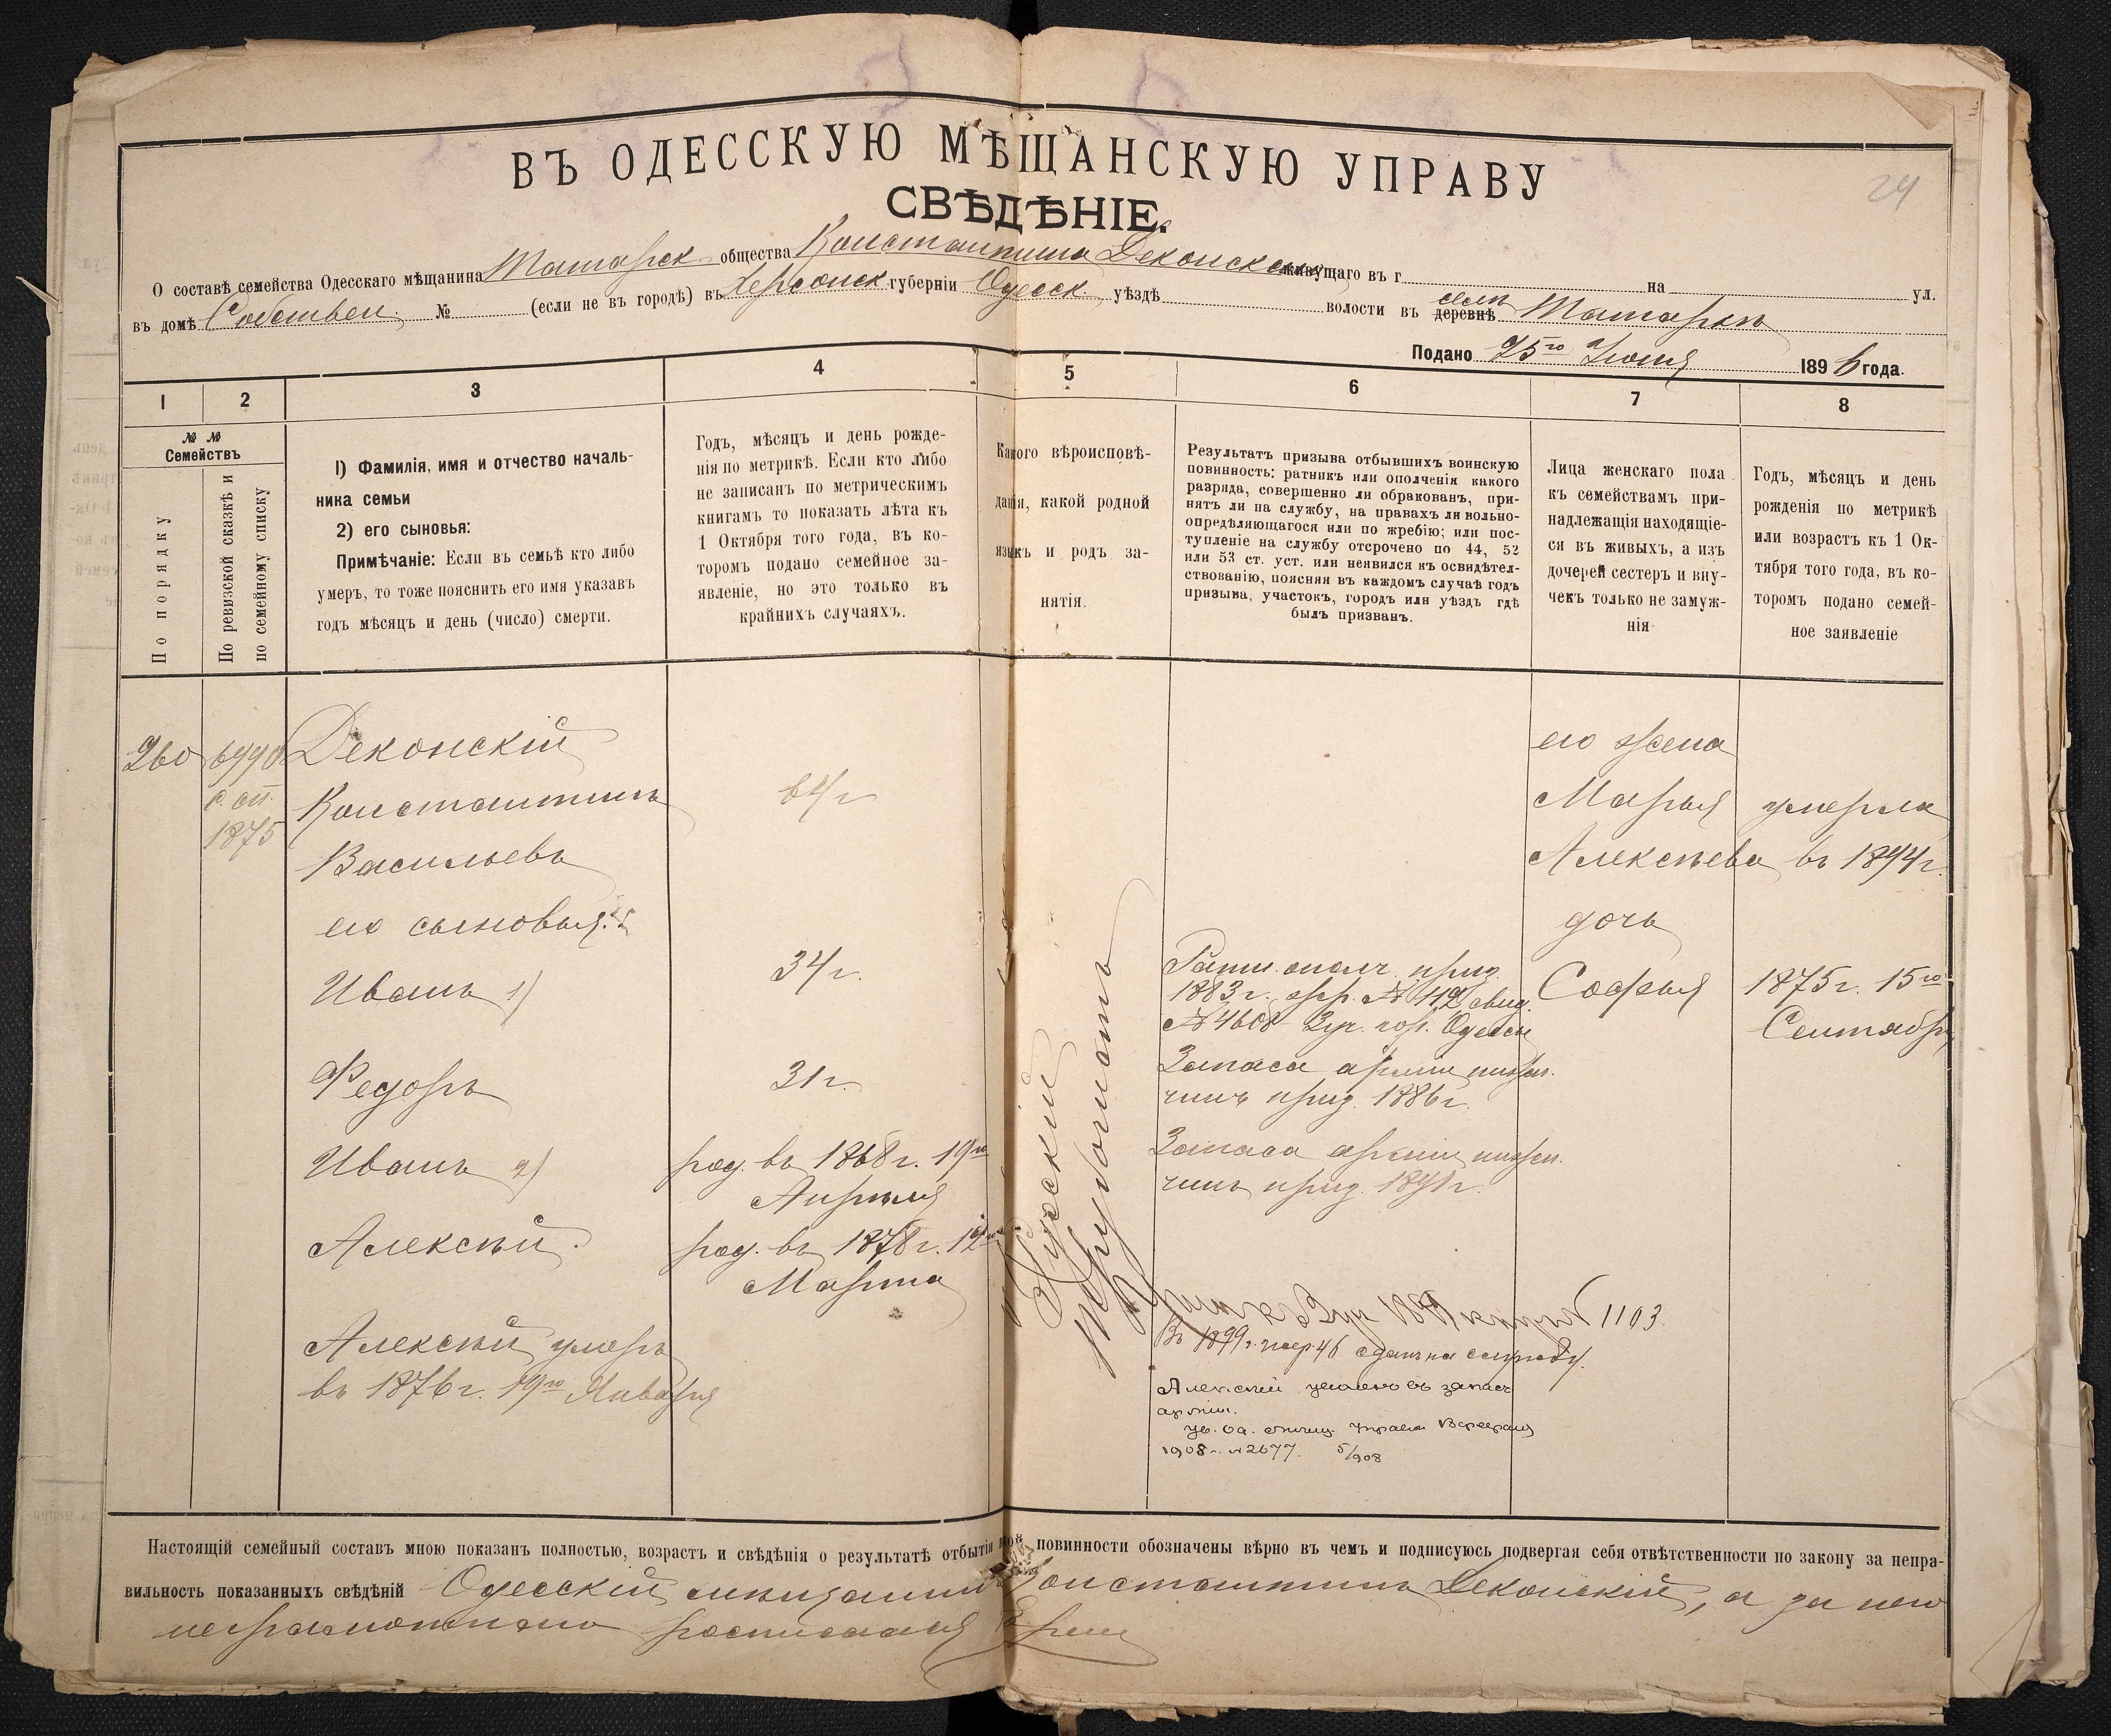 24
ВЪ ОДЕССКУЮ МѢЩАНСКУЮ УПРАВУ
СВѢДѢНІЕ.
О составѣ семейства Одесскаго мѣщанина Татарск. общества Константина Деконскаго живущаго въ г. на ул.
въ домѣ Собствен. № (если не въ городѣ) въ Херсонск. губерніи Одесск. уѣздѣ волости въ деревнѣ селѣ Татаркѣ
Подано 25го Іюня 1896 года.
1 2 3 4 5 6 7 8
№ №
Семействъ
По порядку
По ревизской сказкѣ и
по семейному списку
1) Фамилія, имя и отчество началь-
ника семьи
2) его сыновья:
Примѣчаніе: Если въ семьѣ кто либо
умеръ, то тоже пояснить его имя указавъ
годъ мѣсяцъ и день (число) смерти.
Годъ, мѣсяцъ и день рожде-
нія по метрикѣ. Если кто либо
не записанъ по метрическимъ
книгамъ то показать лѣта къ
1 Октября того года, въ ко-
торомъ подано семейное за-
явленіе, но это только въ
крайнихъ случаяхъ.
Какого вѣроисповѣ-
данія, какой родной
языкъ и родъ за-
нятія.
Результатъ призыва отбывшихъ воинскую
повинность: ратникъ или ополченія какого
разряда, совершенно ли обракованъ, при-
нятъ ли на службу, на правахъ ли вольно-
опредѣляющагося или по жребію; или пос-
тупленіе на службу отсрочено по 44, 52
или 53 ст. уст. или неявился къ освидѣтел-
ствованію, поясняя въ каждомъ случаѣ годъ
призыва, участокъ, городъ или уѣздъ гдѣ
былъ призванъ.
Лица женскаго пола
къ семействамъ при-
надлежащія находящіе-
ся въ живыхъ, а изъ
дочерей сестеръ и вну-
чекъ только не замуж-
нія
Годъ, мѣсяцъ и день
рожденія по метрикѣ
или возрастъ къ 1 Ок-
тября того года, въ ко-
торомъ подано семей-
ное заявленіе
260 6990
с. сп.
1875
Деконскій
Константинъ
Васильевъ
64 г
его сыновья:
Иванъ 1)
34 г.
Федоръ
31 г.
Иванъ 2)
род. въ 1868 г. 19го
Апрѣля
Алексѣй
род. въ 1878 г. 12го
Марта
Алексѣй умеръ
въ 1876 г. 19го Января
Русскій
Ратн. ополч. приз.
1883 г. жр. № 412 свид.
№ 4608 2 уч. гор. Одессы
Запаса арміи нижн.
чинъ приз. 1886 г.
Запаса арміи нижн.
чинъ приз. 1891 г.
1103
Въ 1899 г. жер. 46 сданъ на службу.
Алексѣй уволенъ въ запасъ
арміи.
1908 г. № 2677. 5/908
его жена
Марья
Алексѣева
умерла
въ 1894 г.
дочь
Софья
1875 г. 15го
Сентября
Настоящій семейный составъ мною показанъ полностью, возрастъ и свѣдѣнія о результатѣ отбытія мой повинности обозначены вѣрно въ чемъ и подписуюсь подвергая себя отвѣтственности по закону за непра-
вильность показанныхъ свѣдѣній Одесскій мѣщанинъ Константинъ Деконскій, а за него
неграмотнаго росписался